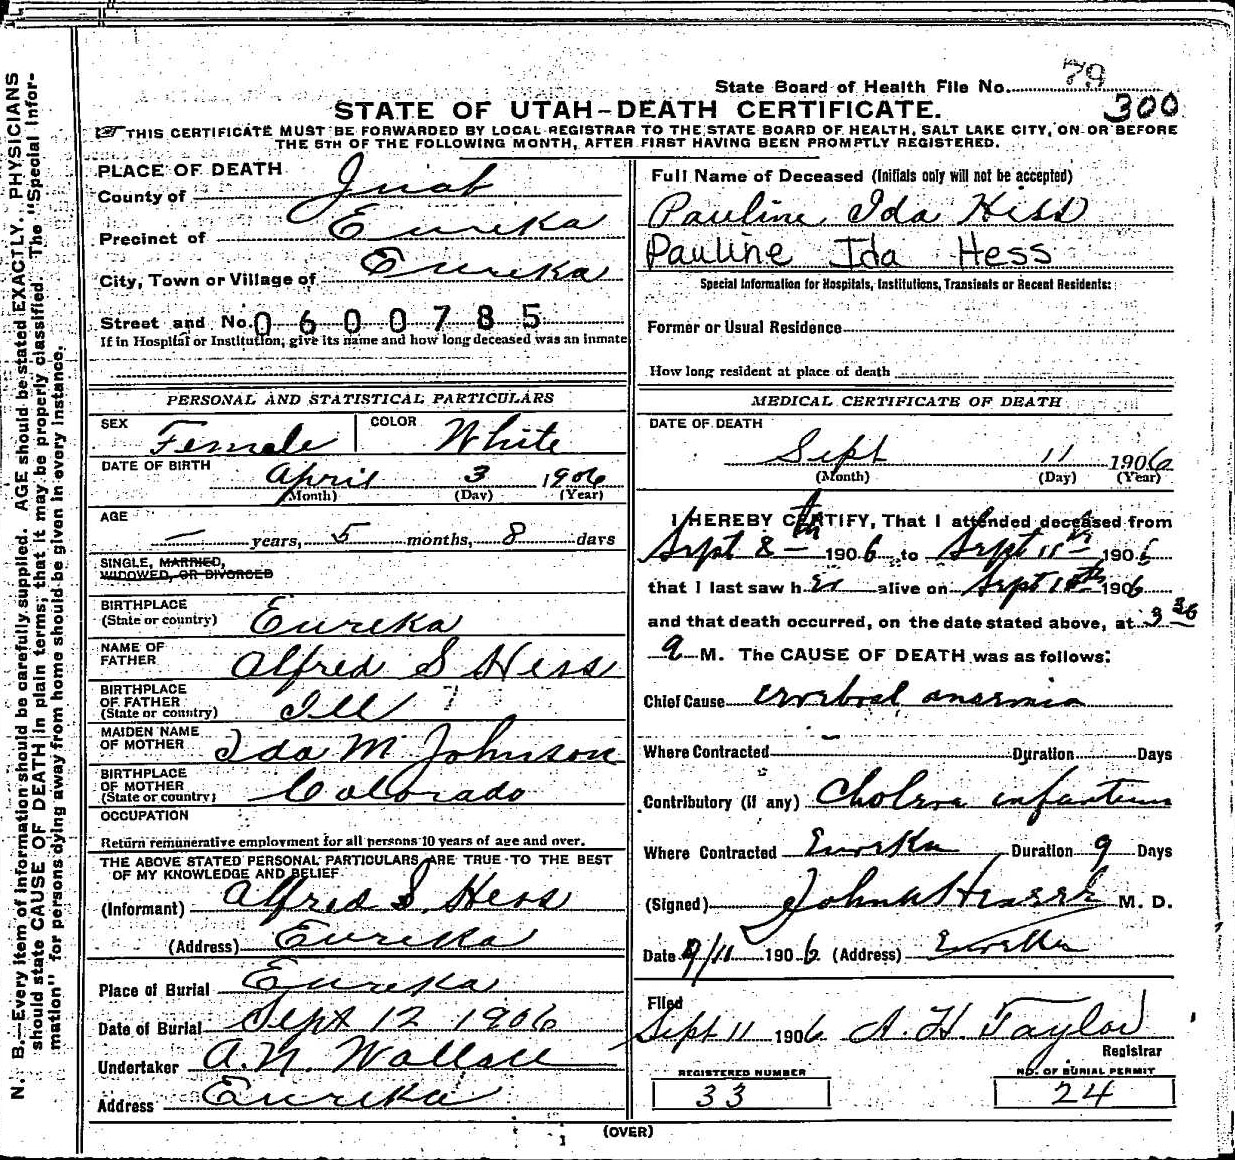 State Board of Health File No. 79
300
STATE OF UTAH-DEATH CERTIFICATE.
THIS CERTIFICATE MUST BE FORWARDED BY LOCAL REGISTRAR TO THE STATE BOARD OF HEALTH, SALT LAKE CITY, ON OR BEFORE
THE 5TH OF THE FOLLOWING MONTH, AFTER FIRST HAVING BEEN PROMPTLY REGISTERED.
N. B.—Every item of information should be carefully supplied. AGE should be stated EXACTLY. PHYSICIANS
should state CAUSE OF DEATH in plain terms; that it may be properly classified. The "Special Infor-
mation" for persons dying away from home should be given in every instance.
PLACE OF DEATH
County of Juab
Precinct of Eureka
City, Town or Village of Eureka
Street and No. 0600785
If in Hospital or Institution, give its name and how long deceased was an inmate
PERSONAL AND STATISTICAL PARTICULARS
SEX Female COLOR White
DATE OF BIRTH April 3 1906
(Month) (Day) (Year)
AGE
— years, 5 months, 8 days
SINGLE, MARRIED,
WIDOWED, OR DIVORCED
BIRTHPLACE
(State or country) Eureka
NAME OF
FATHER Alfred S Hess
BIRTHPLACE
OF FATHER
(State or country) Ill
MAIDEN NAME
OF MOTHER Ida M Johnson
BIRTHPLACE
OF MOTHER
(State or country) Colorado
OCCUPATION
Return remunerative employment for all persons 10 years of age and over.
THE ABOVE STATED PERSONAL PARTICULARS ARE TRUE TO THE BEST
OF MY KNOWLEDGE AND BELIEF
(Informant) Alfred S. Hess
(Address) Eureka
Place of Burial Eureka
Date of Burial Sept 12 1906
Undertaker A. N. Wallace
Address Eureka
Full Name of Deceased (Initials only will not be accepted)
Pauline Ida Hess
Pauline Ida Hess
Special Information for Hospitals, Institutions, Transients or Recent Residents:
Former or Usual Residence
How long resident at place of death
MEDICAL CERTIFICATE OF DEATH
DATE OF DEATH
Sept 11 1906
(Month) (Day) (Year)
I HEREBY CERTIFY, That I attended deceased from
Sept 8th 1906 to Sept 11th 1906
that I last saw her alive on Sept 10th 1906
and that death occurred, on the date stated above, at 3 30
a M. The CAUSE OF DEATH was as follows:
Chief Cause cerebral anaemia
Where Contracted Duration Days
Contributory (if any) Cholera infantum
Where Contracted Eureka Duration 9 Days
(Signed) John M. D.
Date 9/11 1906 (Address) Eureka
Filed
Sept 11 1906 A. H. Taylor
Registrar
REGISTERED NUMBER NO. OF BURIAL PERMIT
33 24
(OVER)